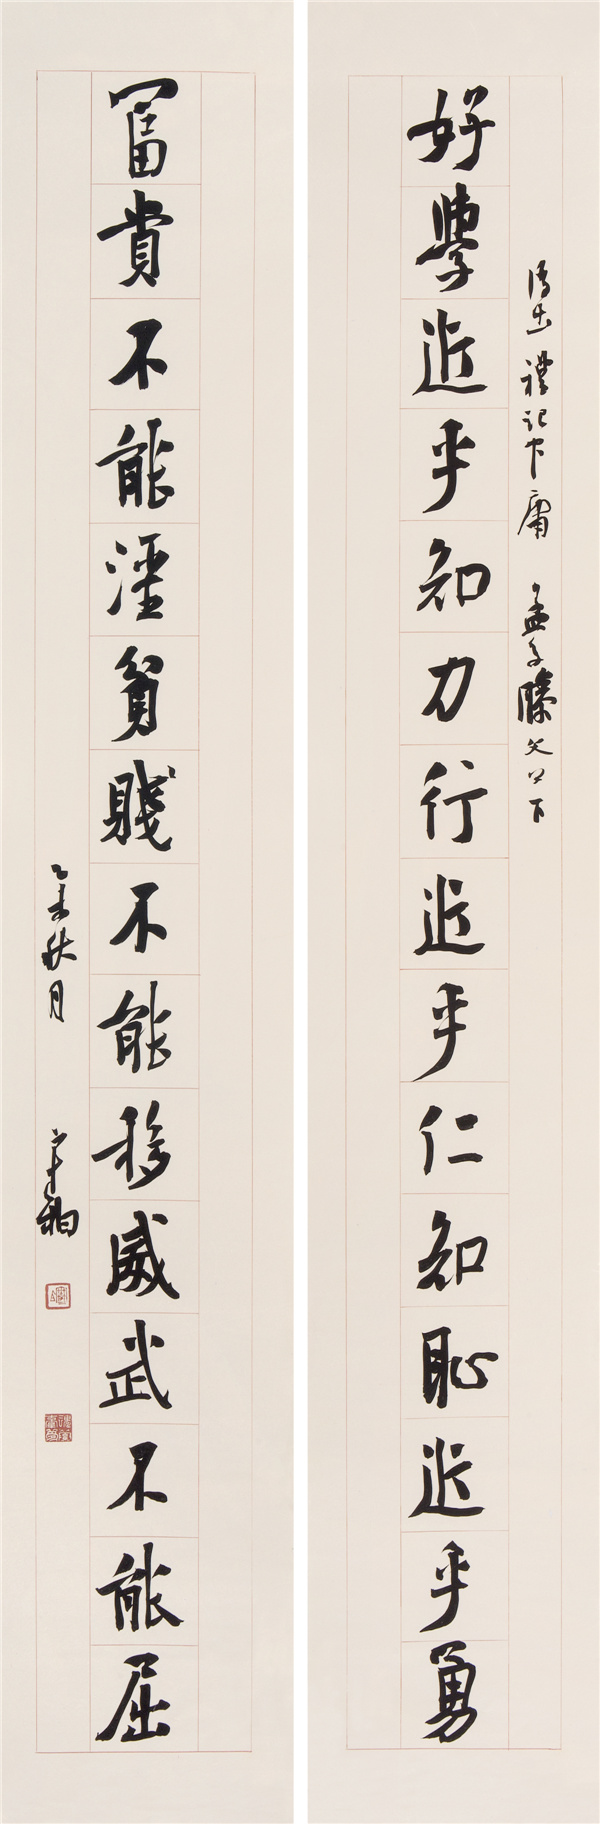 語出禮記中庸 孟子滕文公下
好學近乎知力行近乎仁知恥近乎勇
冨貴不能淫貧賤不能移威武不能屈
乙未秋月